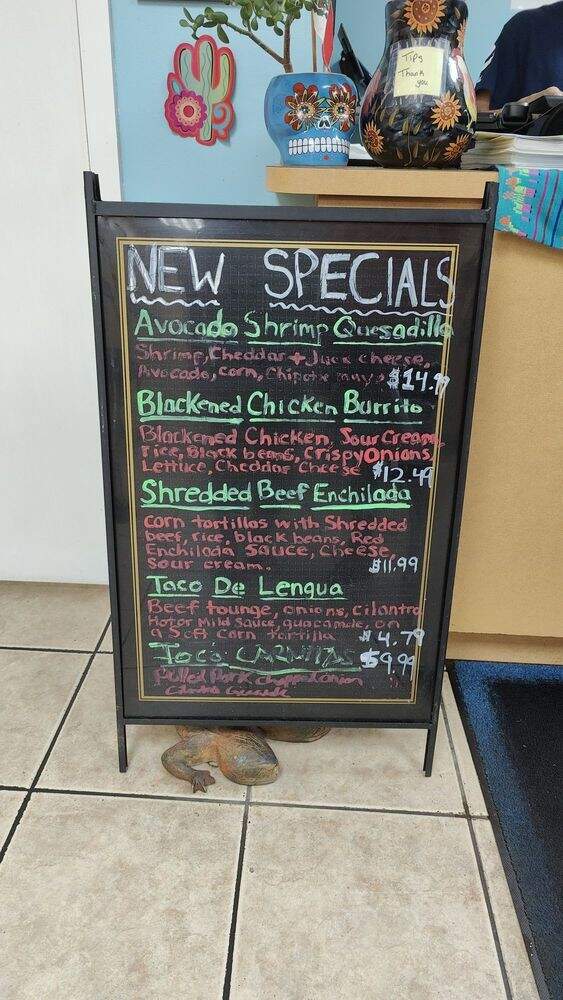 Tips
Thank
you
NEW SPECIALS
Avocado Shrimp Quesadilla
Shrimp, Cheddar + Jack cheese,
Avocado, corn, Chipotle mayo $14.99
Blackened Chicken Burrito
Blackened Chicken, Sour Cream,
rice, Black beans, Crispy Onions,
Lettuce, Cheddar Cheese $12.49
Shredded Beef Enchilada
corn tortillas with Shredded
beef, rice, black beans, Red
Enchilada Sauce, Cheese,
Sour cream. $11.99
Taco De Lengua
Beef tounge, onions, cilantro
Hot or Mild Sauce, guacamole, on
a Soft corn tortilla $4.79
CARNITAS $9.99
Pulled Pork chopped onion